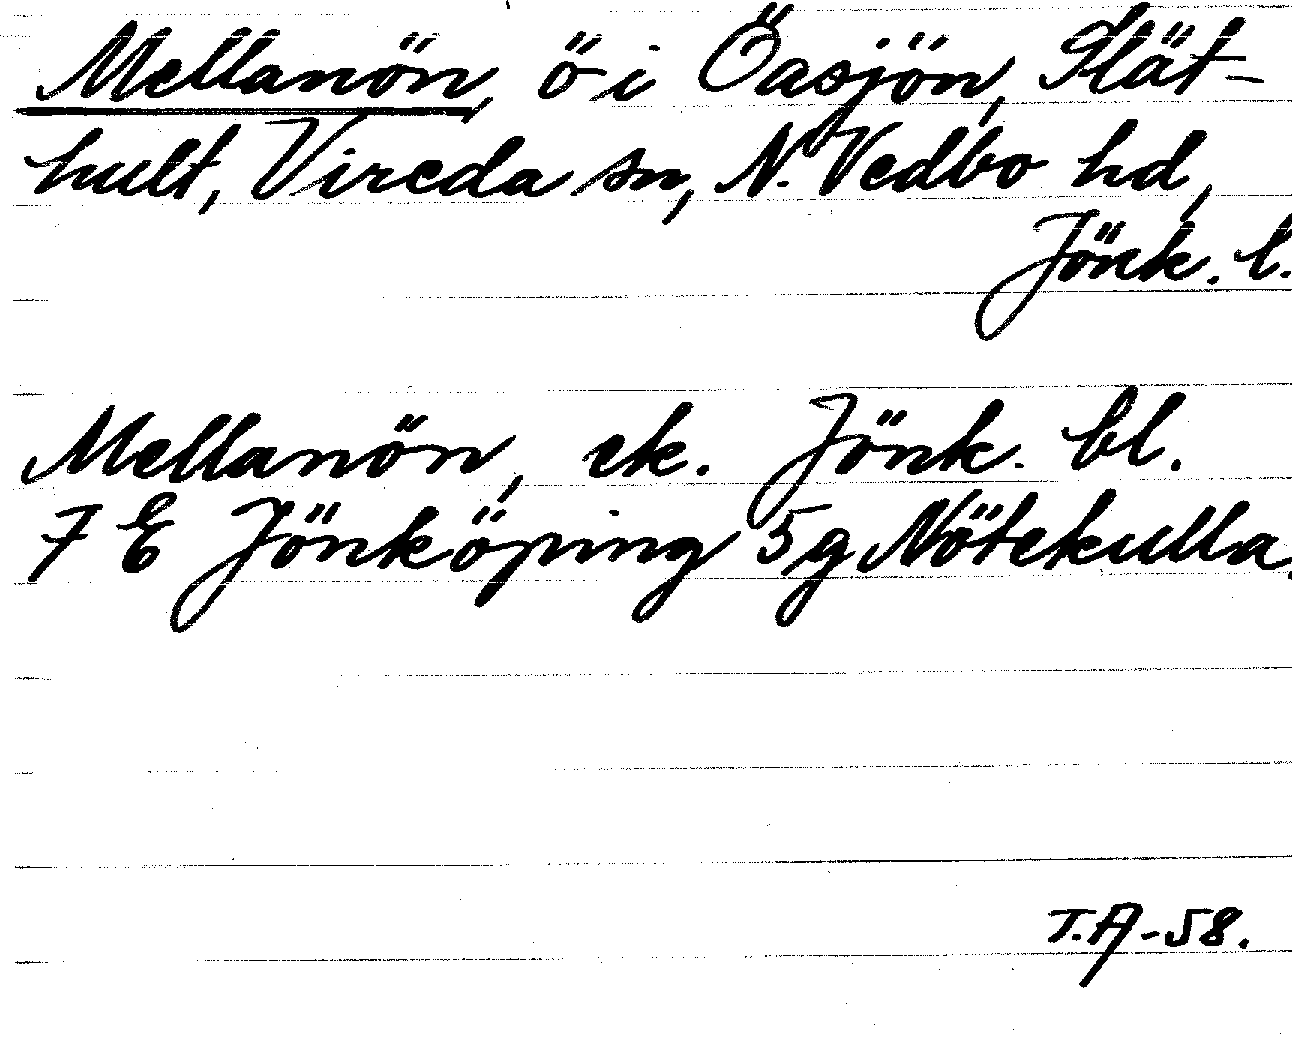 Mellanön, ö i Öasjön, Slät-
hult, Vireda sn, N. Vedbo hd,
Jönk. l.
Mellanön, ek. Jönk. bl.
7 E Jönköping 5g Nötekulla.
T.A-58.